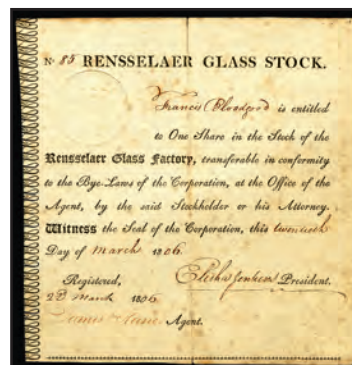 No 85 RENSSELAER GLASS STOCK.
Francis Bloodgood is entitled
to One Share in the Stock of the
Rensselaer Glass Factory, transferable in conformity
to the Bye-Laws of the Corporation, at the Office of the
Agent, by the said Stockholder or his Attorney.
Witness the Seal of the Corporation, this twentieth
Day of March 1806
Elisha Jenkins President.
Registered,
22d March 1806
James Agent.